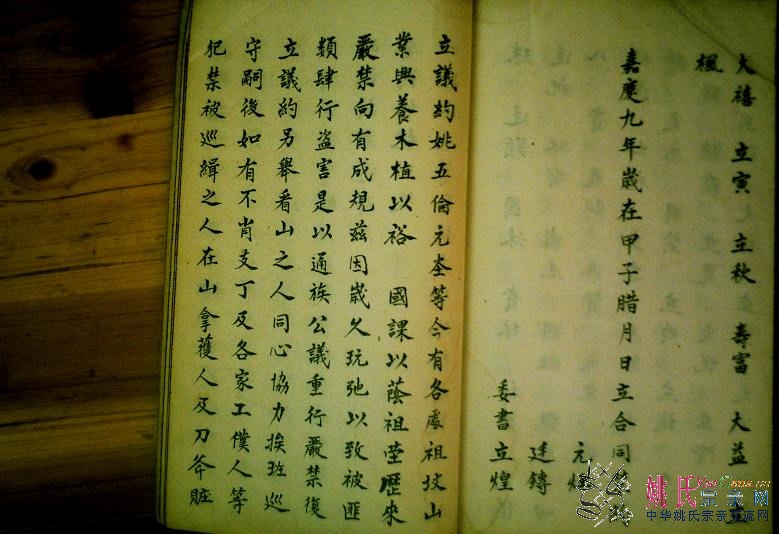 大禧 立寅 立秋 壽富 大益 立
楓
嘉慶九年歲在甲子腊月日立合同
元
廷鏄
委書立煌
立議約姚五倫元峑等今有各處祖坟山
業興養木植以裕 國課以蔭祖塋歷來
嚴禁向有成規茲因歲久玩弛以致被匪
類肆行盗害是以通族公議重行嚴禁復
立議約另舉看山之人同心協力挨班巡
守嗣後如有不肖支丁及各家工僕人等
犯禁被巡緝之人在山拿獲人及刀斧賍
姚氏宗亲网
中华姚氏宗亲交流网